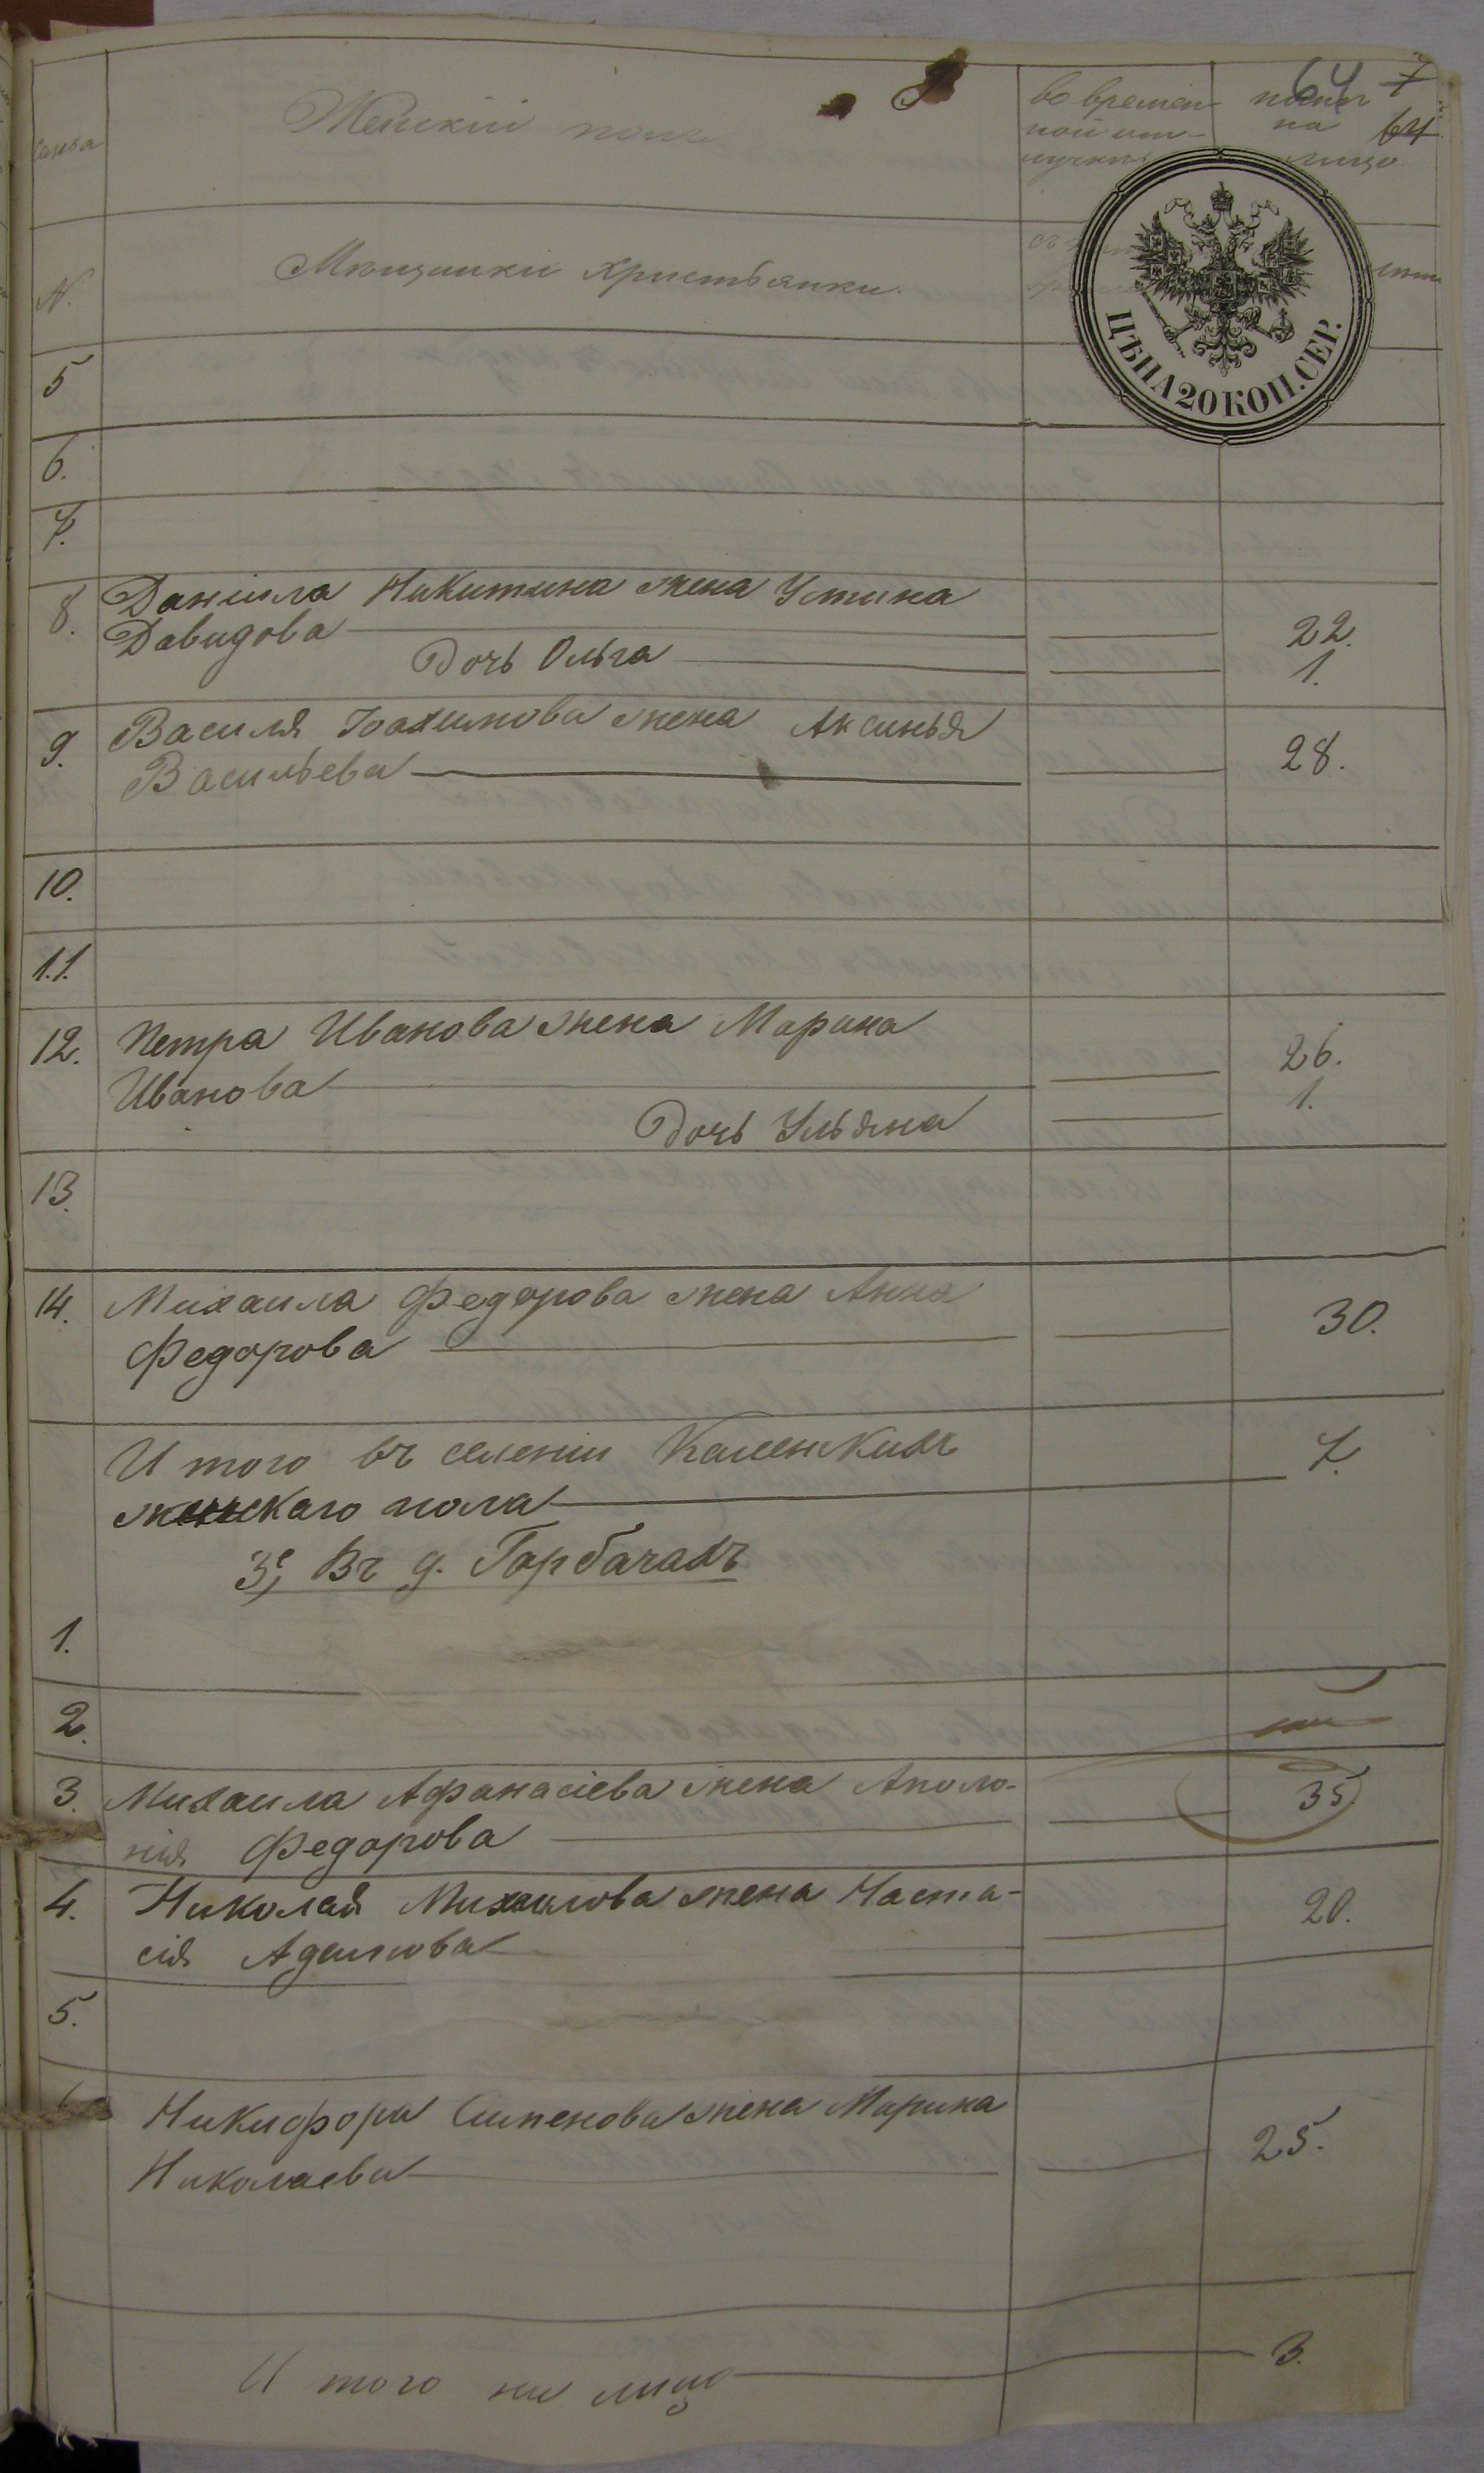 64 7
64
Семья
Женскій полъ
во времен-
ной от-
лучкѣ
на
лицо
N.
Мѣщанки христьянки.
съ
ЦѢНА 20 КОП. СЕР.
5
6.
7.
8. Даніила Никитина жена Устина
Давидова 22.
Дочь Ольга 1.
9. Василя Іоахимова жена Аксинья
Васильева 28.
10.
11.
12. Петра Иванова жена Марина
Иванова 26.
Дочь Ульяна 1.
13.
14. Михаила Федорова жена Анна
Федорова 30.
И того въ селеніи Каменкихъ 7.
женскаго пола
3е, Въ д. Горбачахъ
1.
2.
3. Михаила Афанасіева жена Аполо- 35
нія Федорова
4. Николая Михаилова жена Наста- 20.
сія Адамова
5.
Никифора Сипенова жена Марина
Николаева 25.
И того на лицо 3.